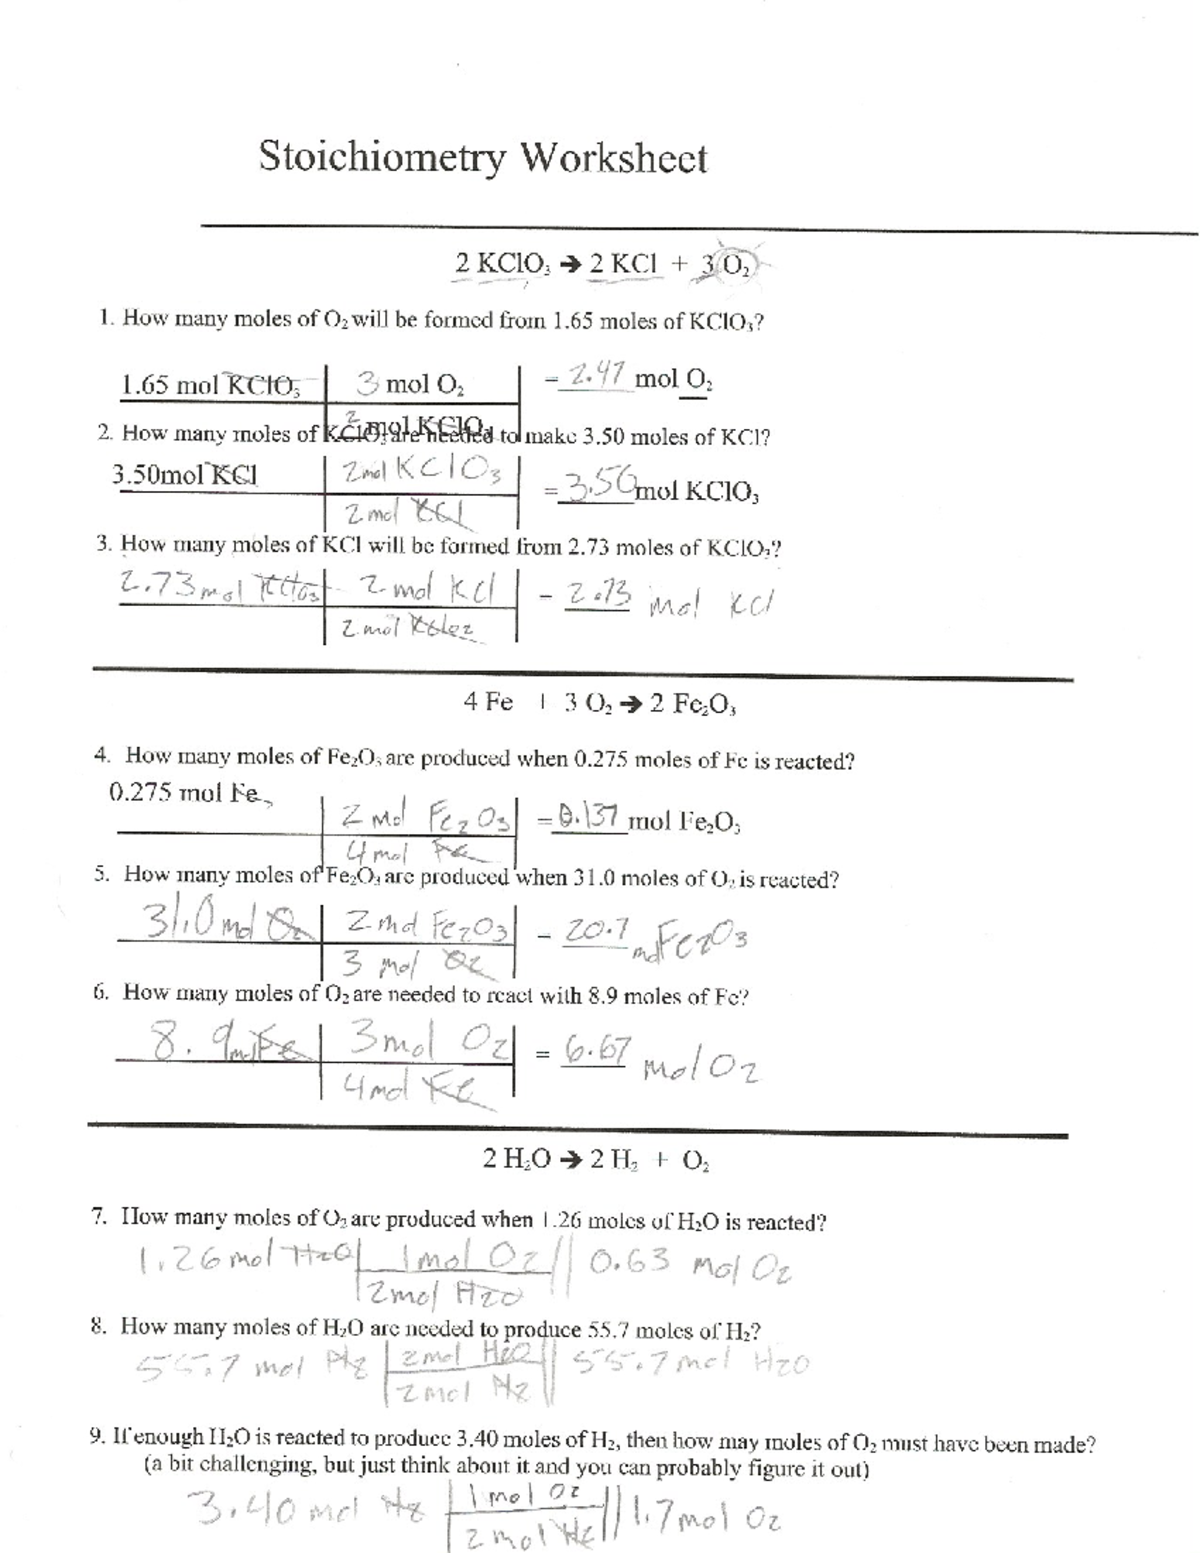 Stoichiometry Worksheet
2 KClO₃ ➔ 2 KCl + 3 O₂
1. How many moles of O₂ will be formed from 1.65 moles of KClO₃?
1.65 mol KClO₃ 3 mol O₂ = 2.47 mol O₂
2 mol KClO₃
2. How many moles of KClO₃ are needed to make 3.50 moles of KCl?
3.50mol KCl 2 mol KClO₃ = 3.50 mol KClO₃
2 mol KCl
3. How many moles of KCl will be formed from 2.73 moles of KClO₃?
2.73 mol KClO₃ 2 mol KCl = 2.73 mol KCl
2 mol
4 Fe + 3 O₂ ➔ 2 Fe₂O₃
4. How many moles of Fe₂O₃ are produced when 0.275 moles of Fe is reacted?
0.275 mol Fe
2 mol Fe₂O₃ = 0.137 mol Fe₂O₃
4 mol Fe
5. How many moles of Fe₂O₃ are produced when 31.0 moles of O₂ is reacted?
31.0 mol O₂ 2 mol Fe₂O₃ = 20.7 mol Fe₂O₃
3 mol O₂
6. How many moles of O₂ are needed to react with 8.9 moles of Fe?
8.9 mol Fe 3 mol O₂ = 6.67 mol O₂
4 mol Fe
2 H₂O ➔ 2 H₂ + O₂
7. How many moles of O₂ are produced when 1.26 moles of H₂O is reacted?
1.26 mol H₂O 1 mol O₂ 0.63 mol O₂
2 mol H₂O
8. How many moles of H₂O are needed to produce 55.7 moles of H₂?
55.7 mol H₂ 2 mol H₂O 55.7 mol H₂O
2 mol H₂
9. If enough H₂O is reacted to produce 3.40 moles of H₂, then how may moles of O₂ must have been made?
(a bit challenging, but just think about it and you can probably figure it out)
3.40 mol H₂ 1 mol O₂ 1.7 mol O₂
2 mol H₂